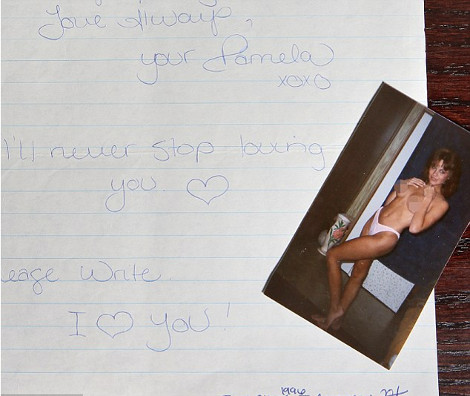 Love Always,
your Pamela
xoxo
I'll never stop loving
you
ease Write
I ♡ you!
1996